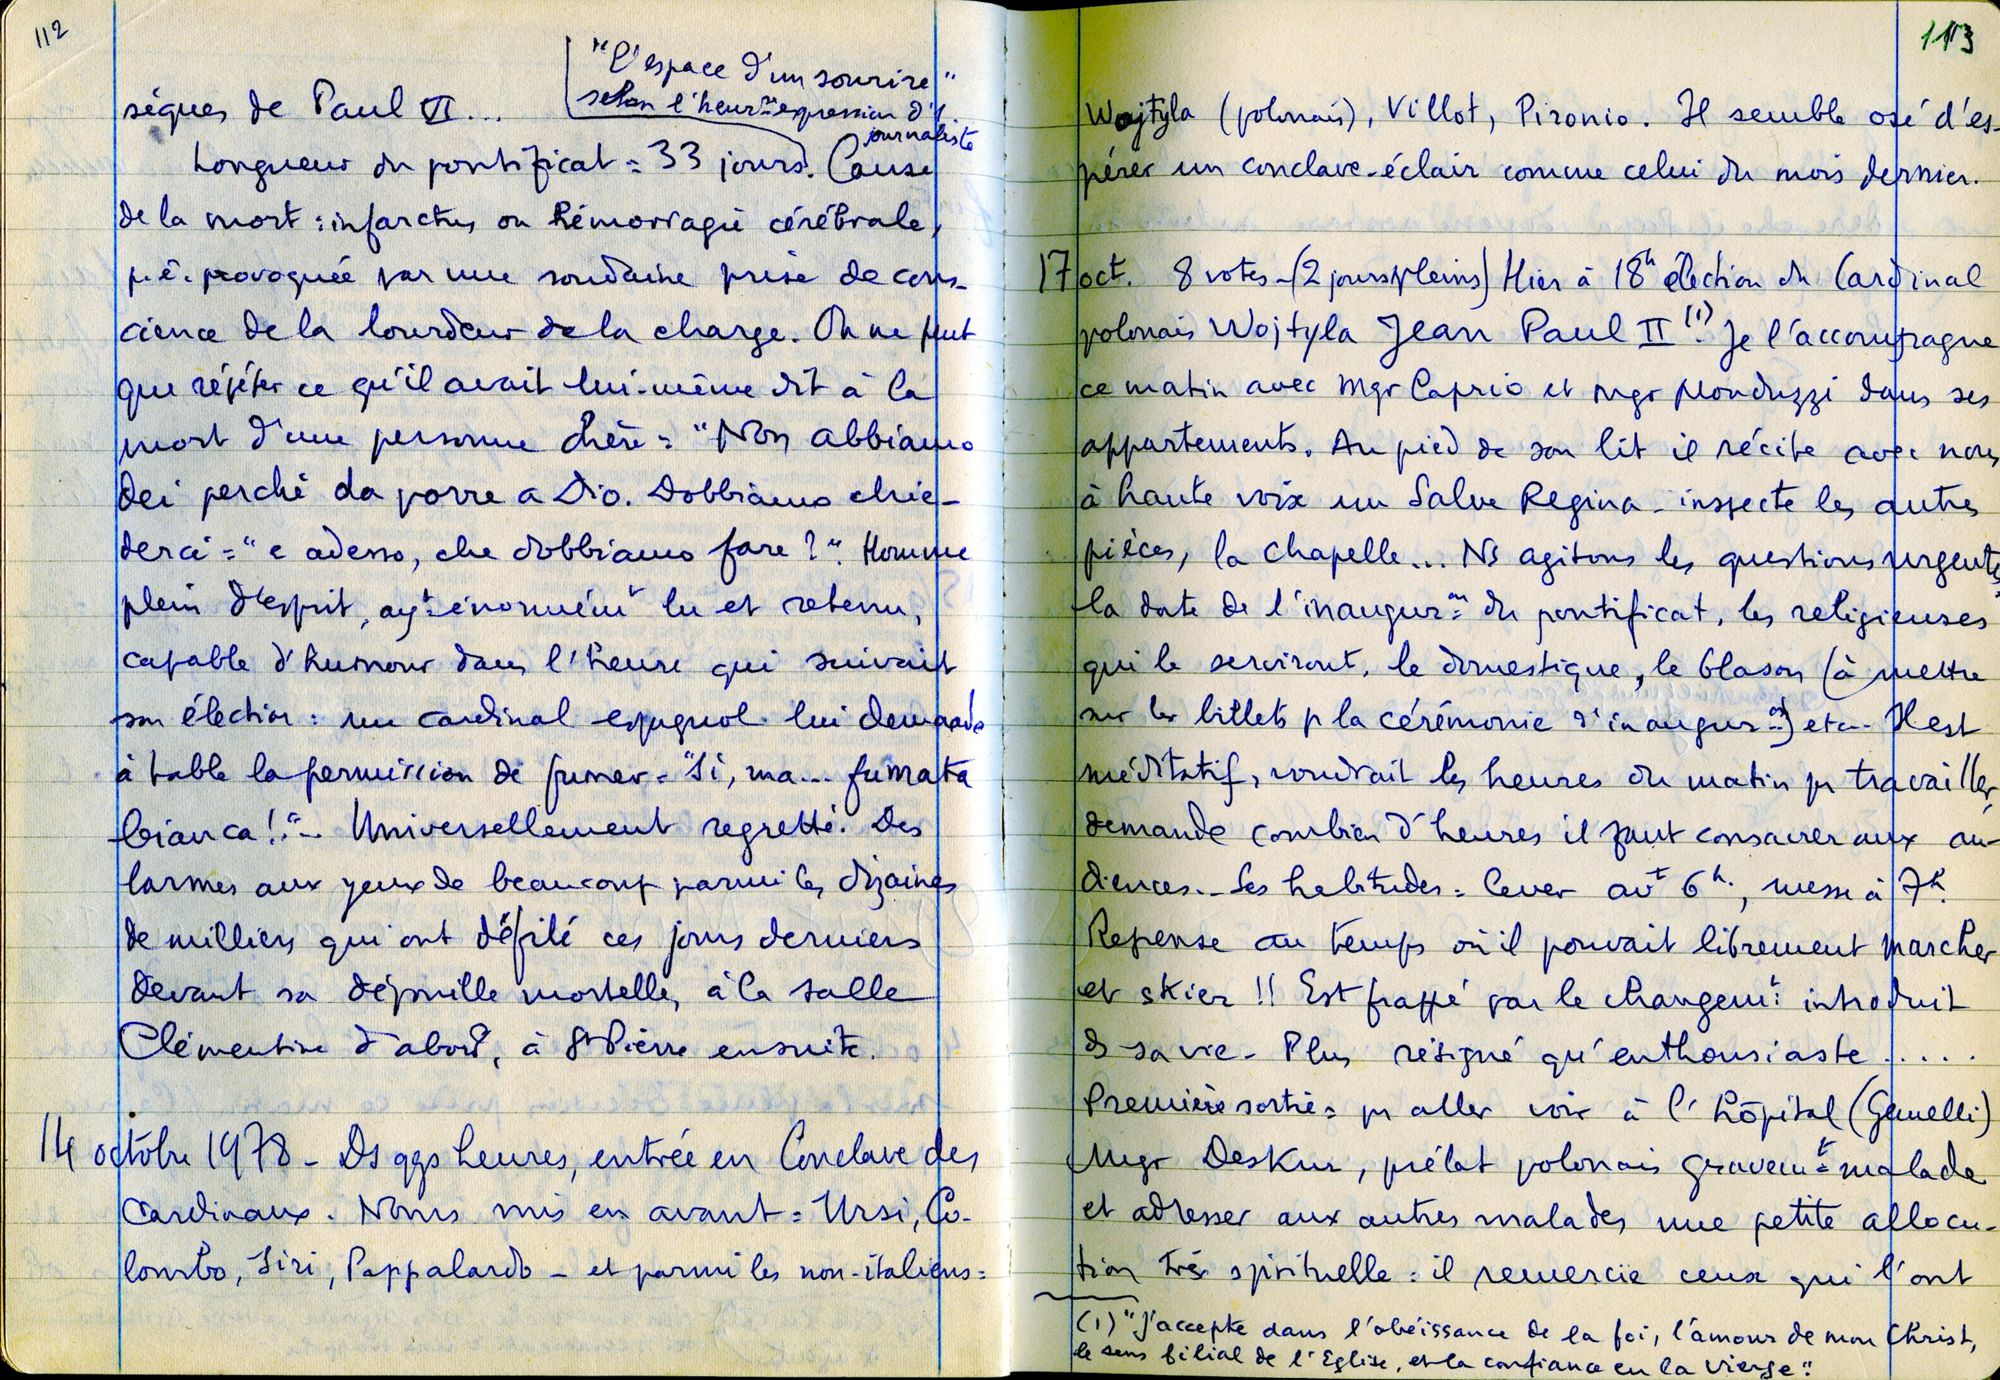 112
"L'espace d'un sourire"
selon l'heurse expression d'1
journaliste
sèques de Paul VI...
Longueur du pontificat = 33 jours. Cause
de la mort : infarctus ou hémorragie cérébrale,
p.ê. provoquée par une soudaine prise de cons-
cience de la lourdeur de la charge. On ne peut
que répéter ce qu'il avait lui-même dit à la
mort d'une personne chère = "Non abbiamo
dei perchè da porre a Dio. Dobbiamo chie-
derci = "e adesso, che dobbiamo fare ?". Homme
plein d'esprit, ayt énormémt lu et retenu,
capable d'humour dans l'heure qui suivait
son élection : un cardinal espagnol lui demande
à table la permission de fumer = "Si, ma... fumata
bianca!." - Universellement regretté. Des
larmes aux yeux de beaucoup parmi les dizaines
de milliers qui ont défilé ces jours derniers
devant sa dépouille mortelle, à la salle
Clémentine d'abord, à St Pierre ensuite.
14 octobre 1978 - Ds qqs heures, entrée en Conclave des
Cardinaux. Noms mis en avant = Ursi, Co-
lombo, Siri, Pappalardo - et parmi les non-italiens =
113
Wojtyla (polonais), Villot, Pironio. Il semble osé d'es-
pérer un conclave-éclair comme celui du mois dernier.
17 oct. 8 votes - (2 jours pleins) Hier à 18h élection du Cardinal
polonais Wojtyla Jean Paul II (1). Je l'accompagne
ce matin avec Mgr Caprio et Mgr Monduzzi dans ses
appartements. Au pied de son lit il récite avec nous
à haute voix un Salve Regina - inspecte les autres
pièces, la chapelle... Ns agitons les questions urgentes,
la date de l'inauguron du pontificat, les religieuses
qui le serviront, le domestique, le blason (à mettre
sur les billets p la cérémonie d'inauguron) etc - Il est
méditatif, voudrait les heures du matin pr travailler,
demande combien d'heures il faut consacrer aux au-
diences. - Ses habitudes = lever avt 6h., messe à 7h.
Repense au temps où il pouvait librement marcher
et skier !! Est frappé par le changemt introduit
ds sa vie - Plus résigné qu'enthousiaste.....
Première sortie = pr aller voir à l'hôpital (Gemelli)
Mgr Deskur, prélat polonais gravemt malade
et adresser aux autres malades une petite allocu-
tion très spirituelle : il remercie ceux qui l'ont
(1) "J'accepte dans l'obéissance de la foi, l'amour de mon Christ,
le sens filial de l'Eglise, et la confiance en la Vierge".